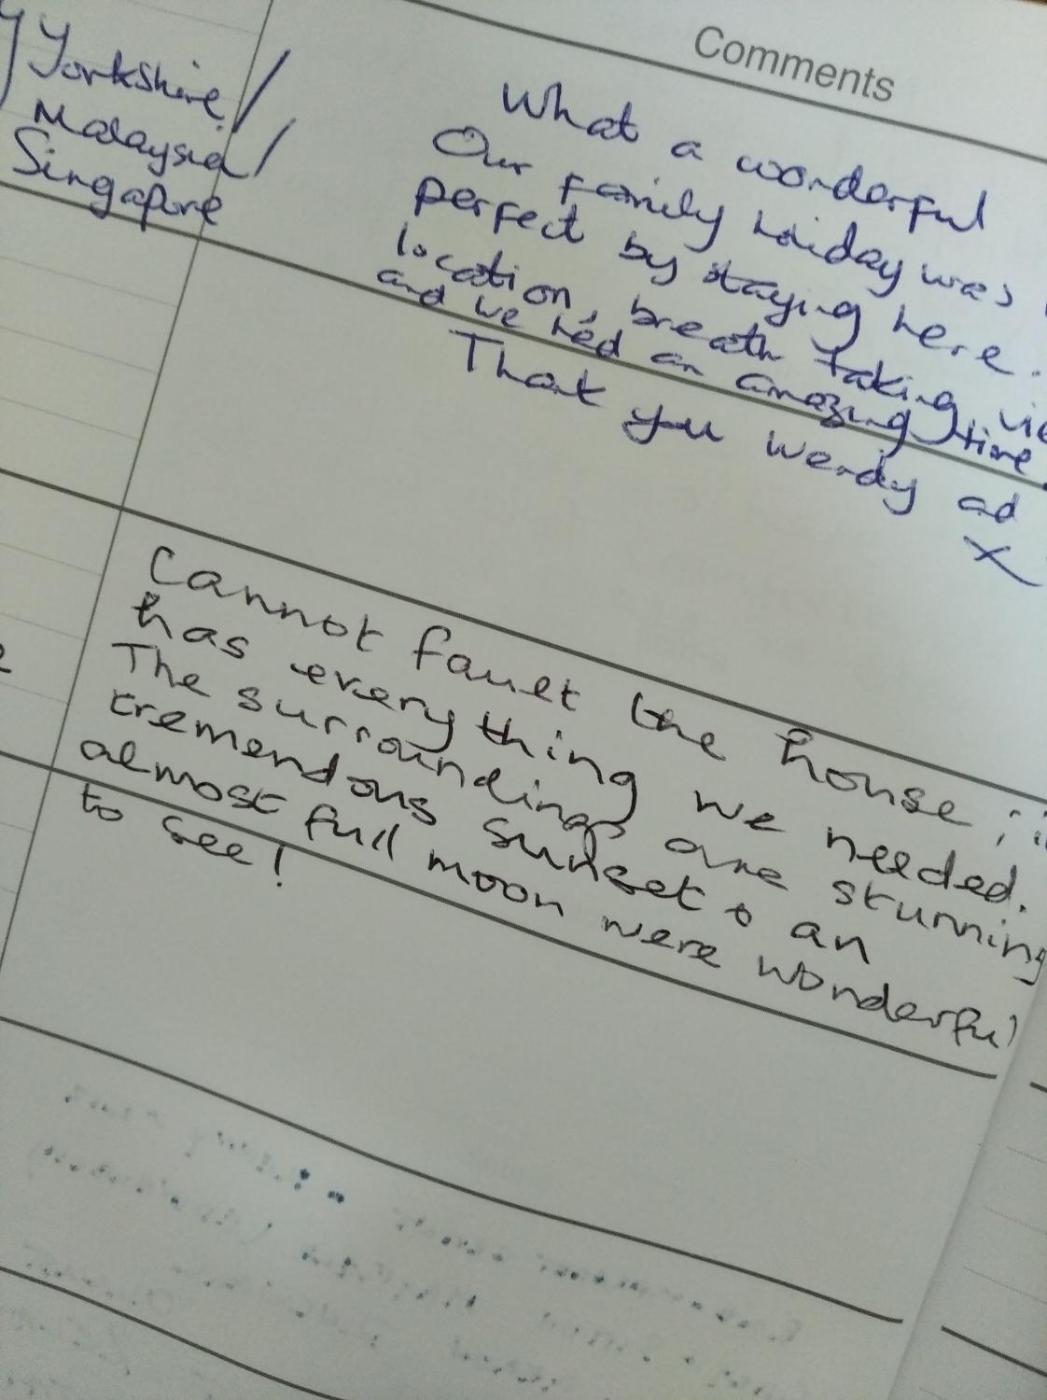 Comments
Yorkshire/
Malaysia/
Singapore
What a wonderful
Our family holiday was
perfect by staying here.
location, breath taking
and we had an amazing time.
Thank you Wendy ad
x
Cannot fault the house;
has everything we needed.
The surroundings are stunning
tremendous sunset & an
almost full moon were wonderful
to see!